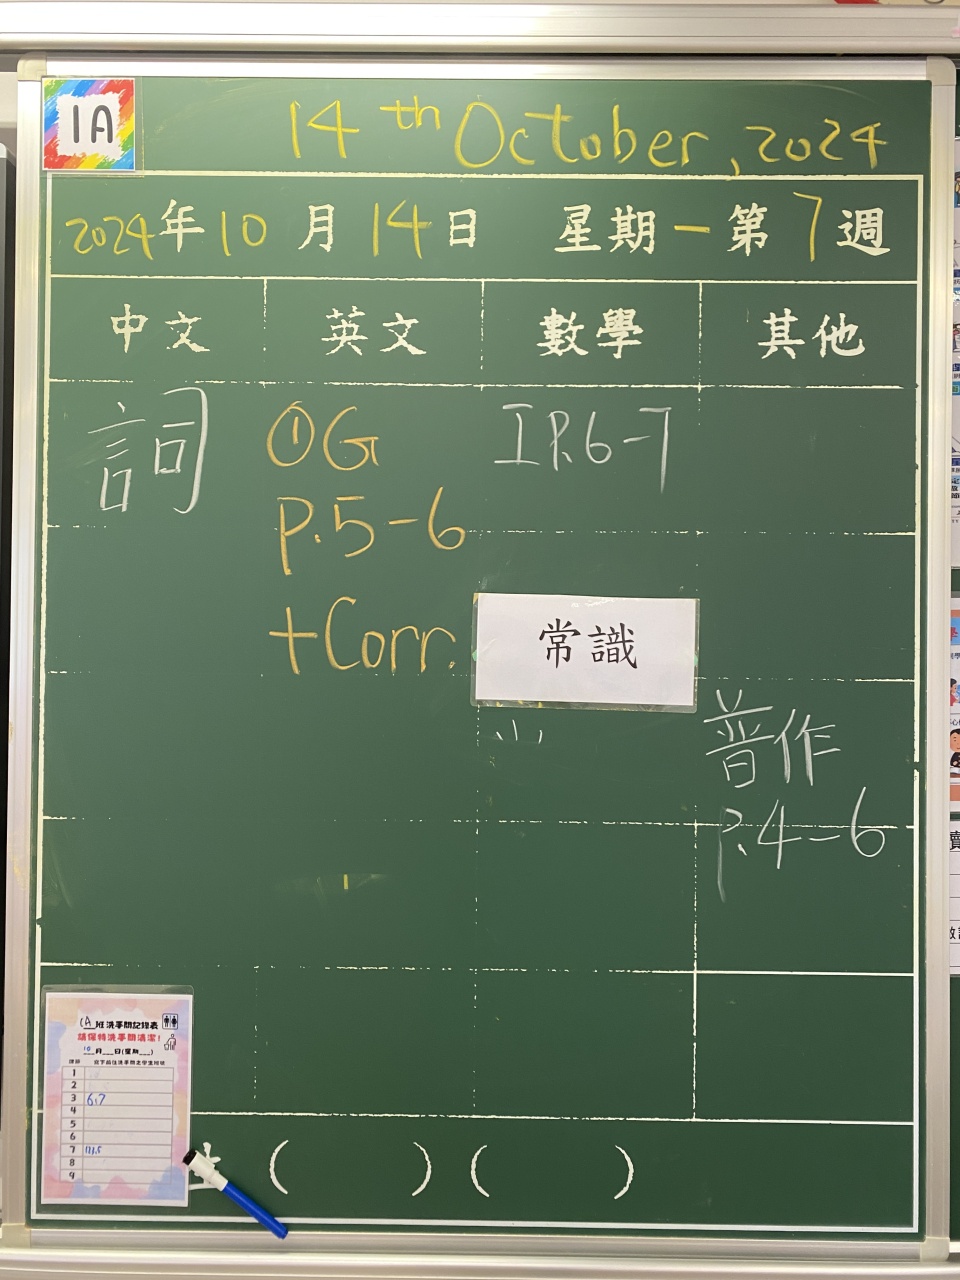 1A
14th October, 2024
2024年10月14日 星期一第7週
中文 英文 數學 其他
詞 ①G I P.6-7
P.5-6
+Corr.
常識
普作
P.4-6
1A班洗手間記錄表
請保持洗手間清潔!
10月__日(星期__)
1
2
3 6,7
4
5
6
7
8
9
( ) ( )